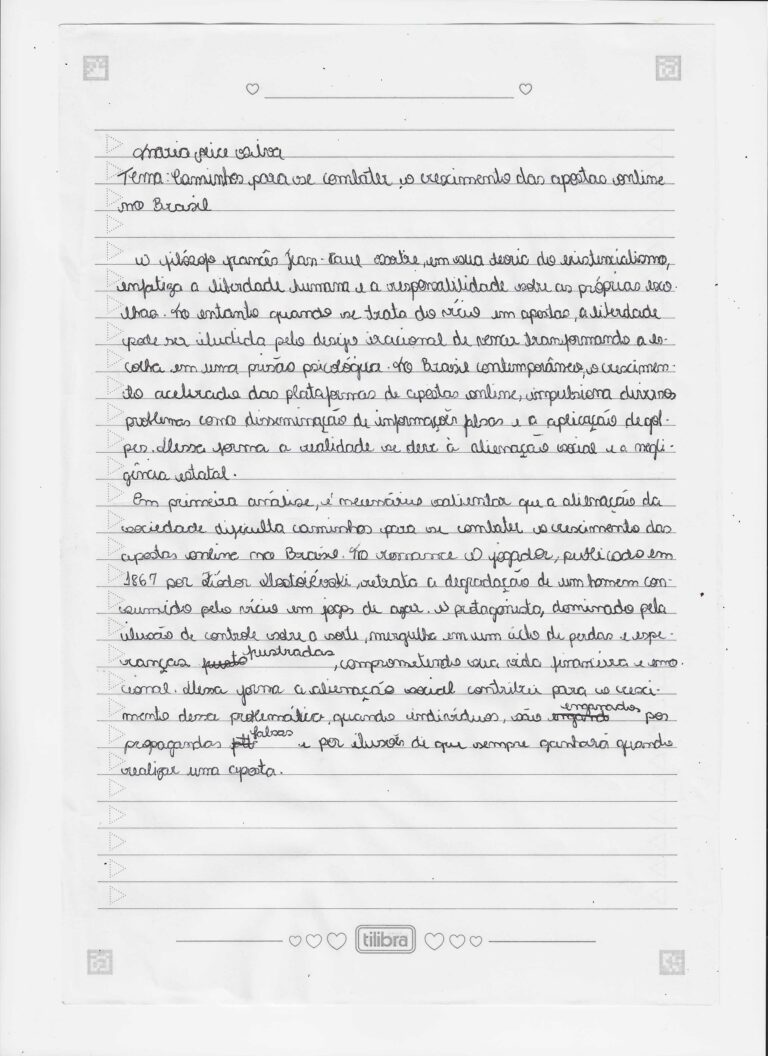 Maria Alice Silva
Tema: Caminhos para se combater o crescimento das apostas online
no Brasil
O filósofo francês Jean-Paul Sartre, em sua teoria do existencialismo,
enfatiza a liberdade humana e a responsalilidade sobre as próprias esco-
lhas. No entanto quando se trata do vício em apostas, a liberdade
pode ser iludida pelo desejo iracional de vencer transformando a es-
colha em uma prisão psicológica. No Brasil contemporâneo, o crescimen-
to acelerado das plataformas de apostas online, impulsiona diversos
problemas como disseminação de informações falsas e a aplicação de gol-
pes. Dessa forma a realidade se deve à alienação social e a negli-
gência estatal.
Em primeira análise, é necessário salientar que a alienação da
sociedade dificulta caminhos para se combater o crescimento das
apostas online no Brasil. No romance O jogador, publicado em
1867 por Fiódor Dostoiévski, retrata a degradação de um homem con-
sumido pelo vício em jogos de azar. O protagonista, dominado pela
ilusão de controle sobre a sorte, mergulha em um ciclo de perdas e espe-
ranças frustradas, comprometendo sua vida financeira e emo-
cional. Dessa forma a alienação social contribui para o cresci-
mento dessa problemática, quando indivíduos, são enganados por
propagandas falsas e por ilusões de que sempre ganhará quando
realizar uma aposta.
tilibra